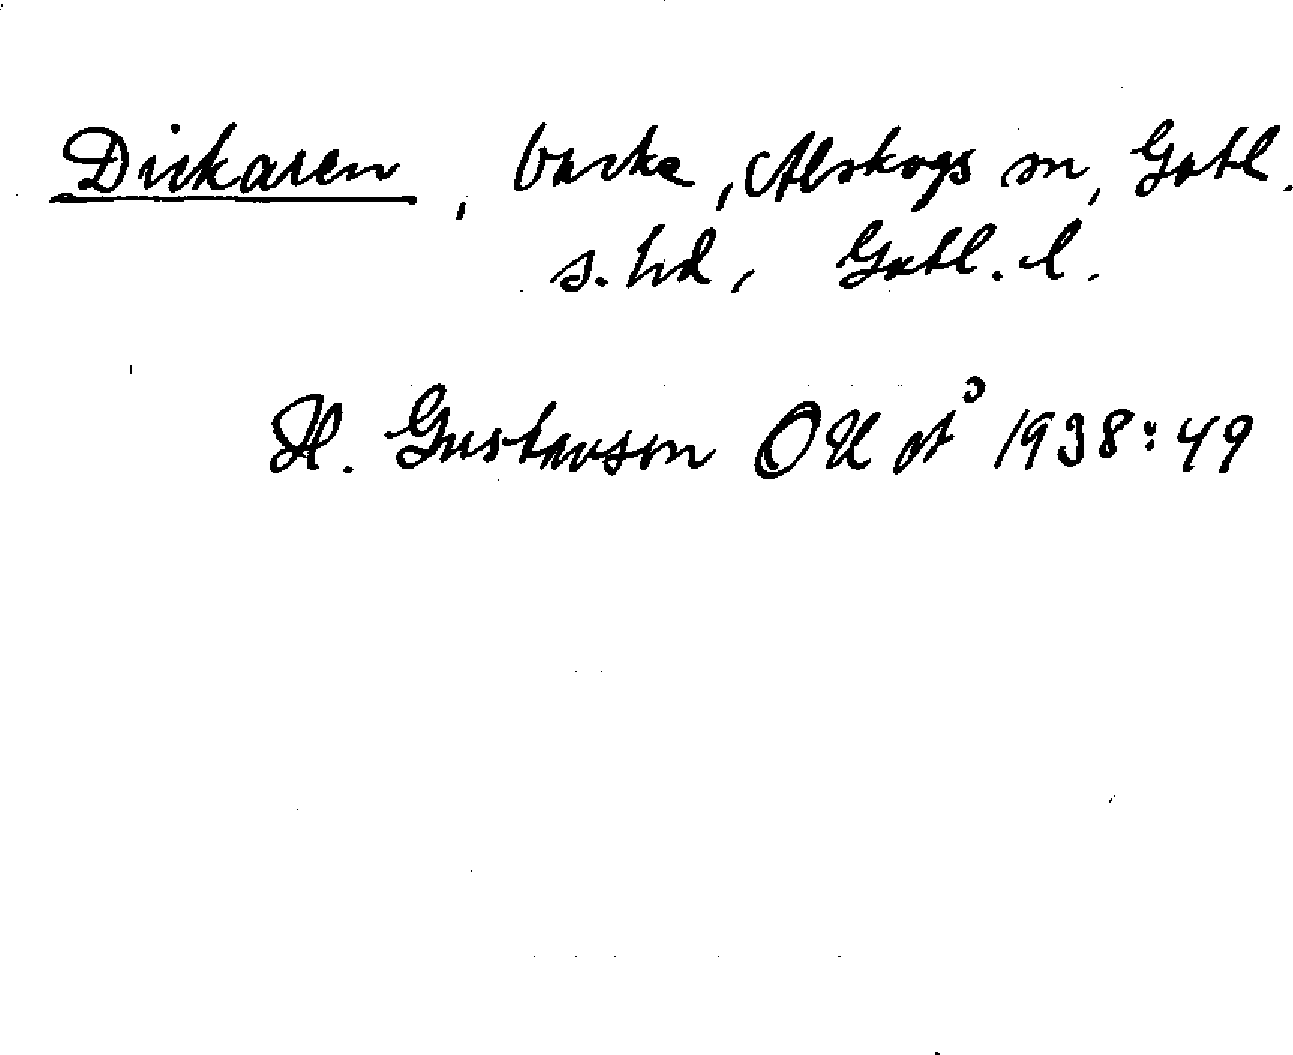 Dickaren, backe, Alskogs sn, Gotl.
s. hd, Gotl. l.
H. Gustavson OU på 1938:49